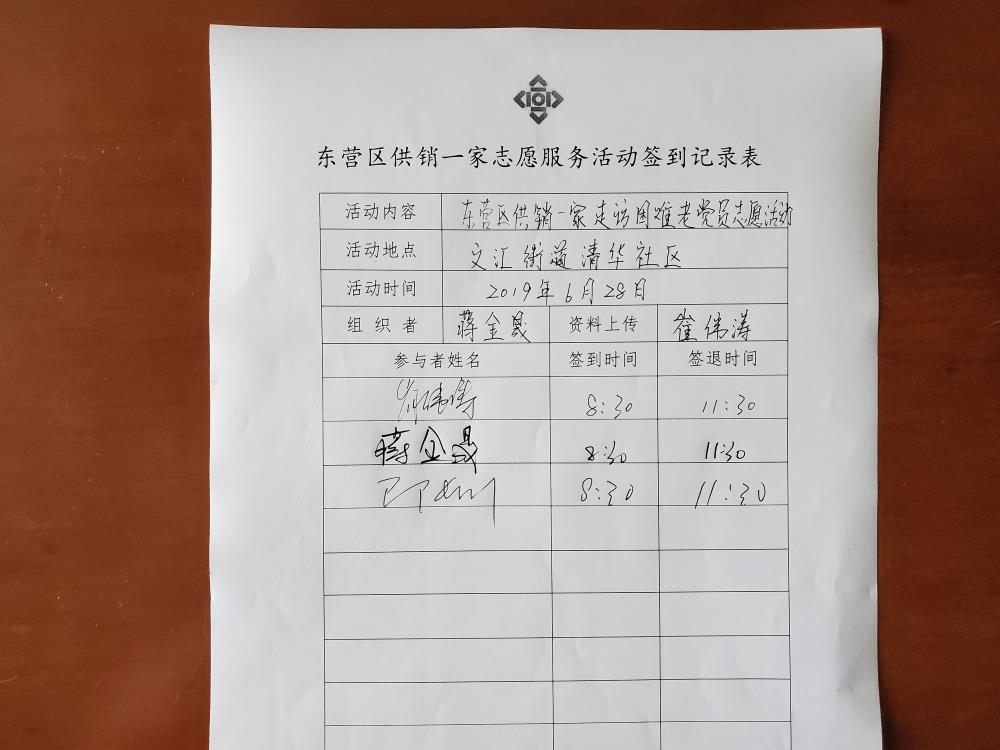 东营区供销一家志愿服务活动签到记录表
活动内容 东营区供销一家走访困难老党员志愿活动
活动地点 文汇街道清华社区
活动时间 2019年6月28日
组织者 蒋金晟 资料上传 崔伟涛
参与者姓名 签到时间 签退时间
崔伟涛 8:30 11:30
蒋金晟 8:30 11:30
8:30 11:30